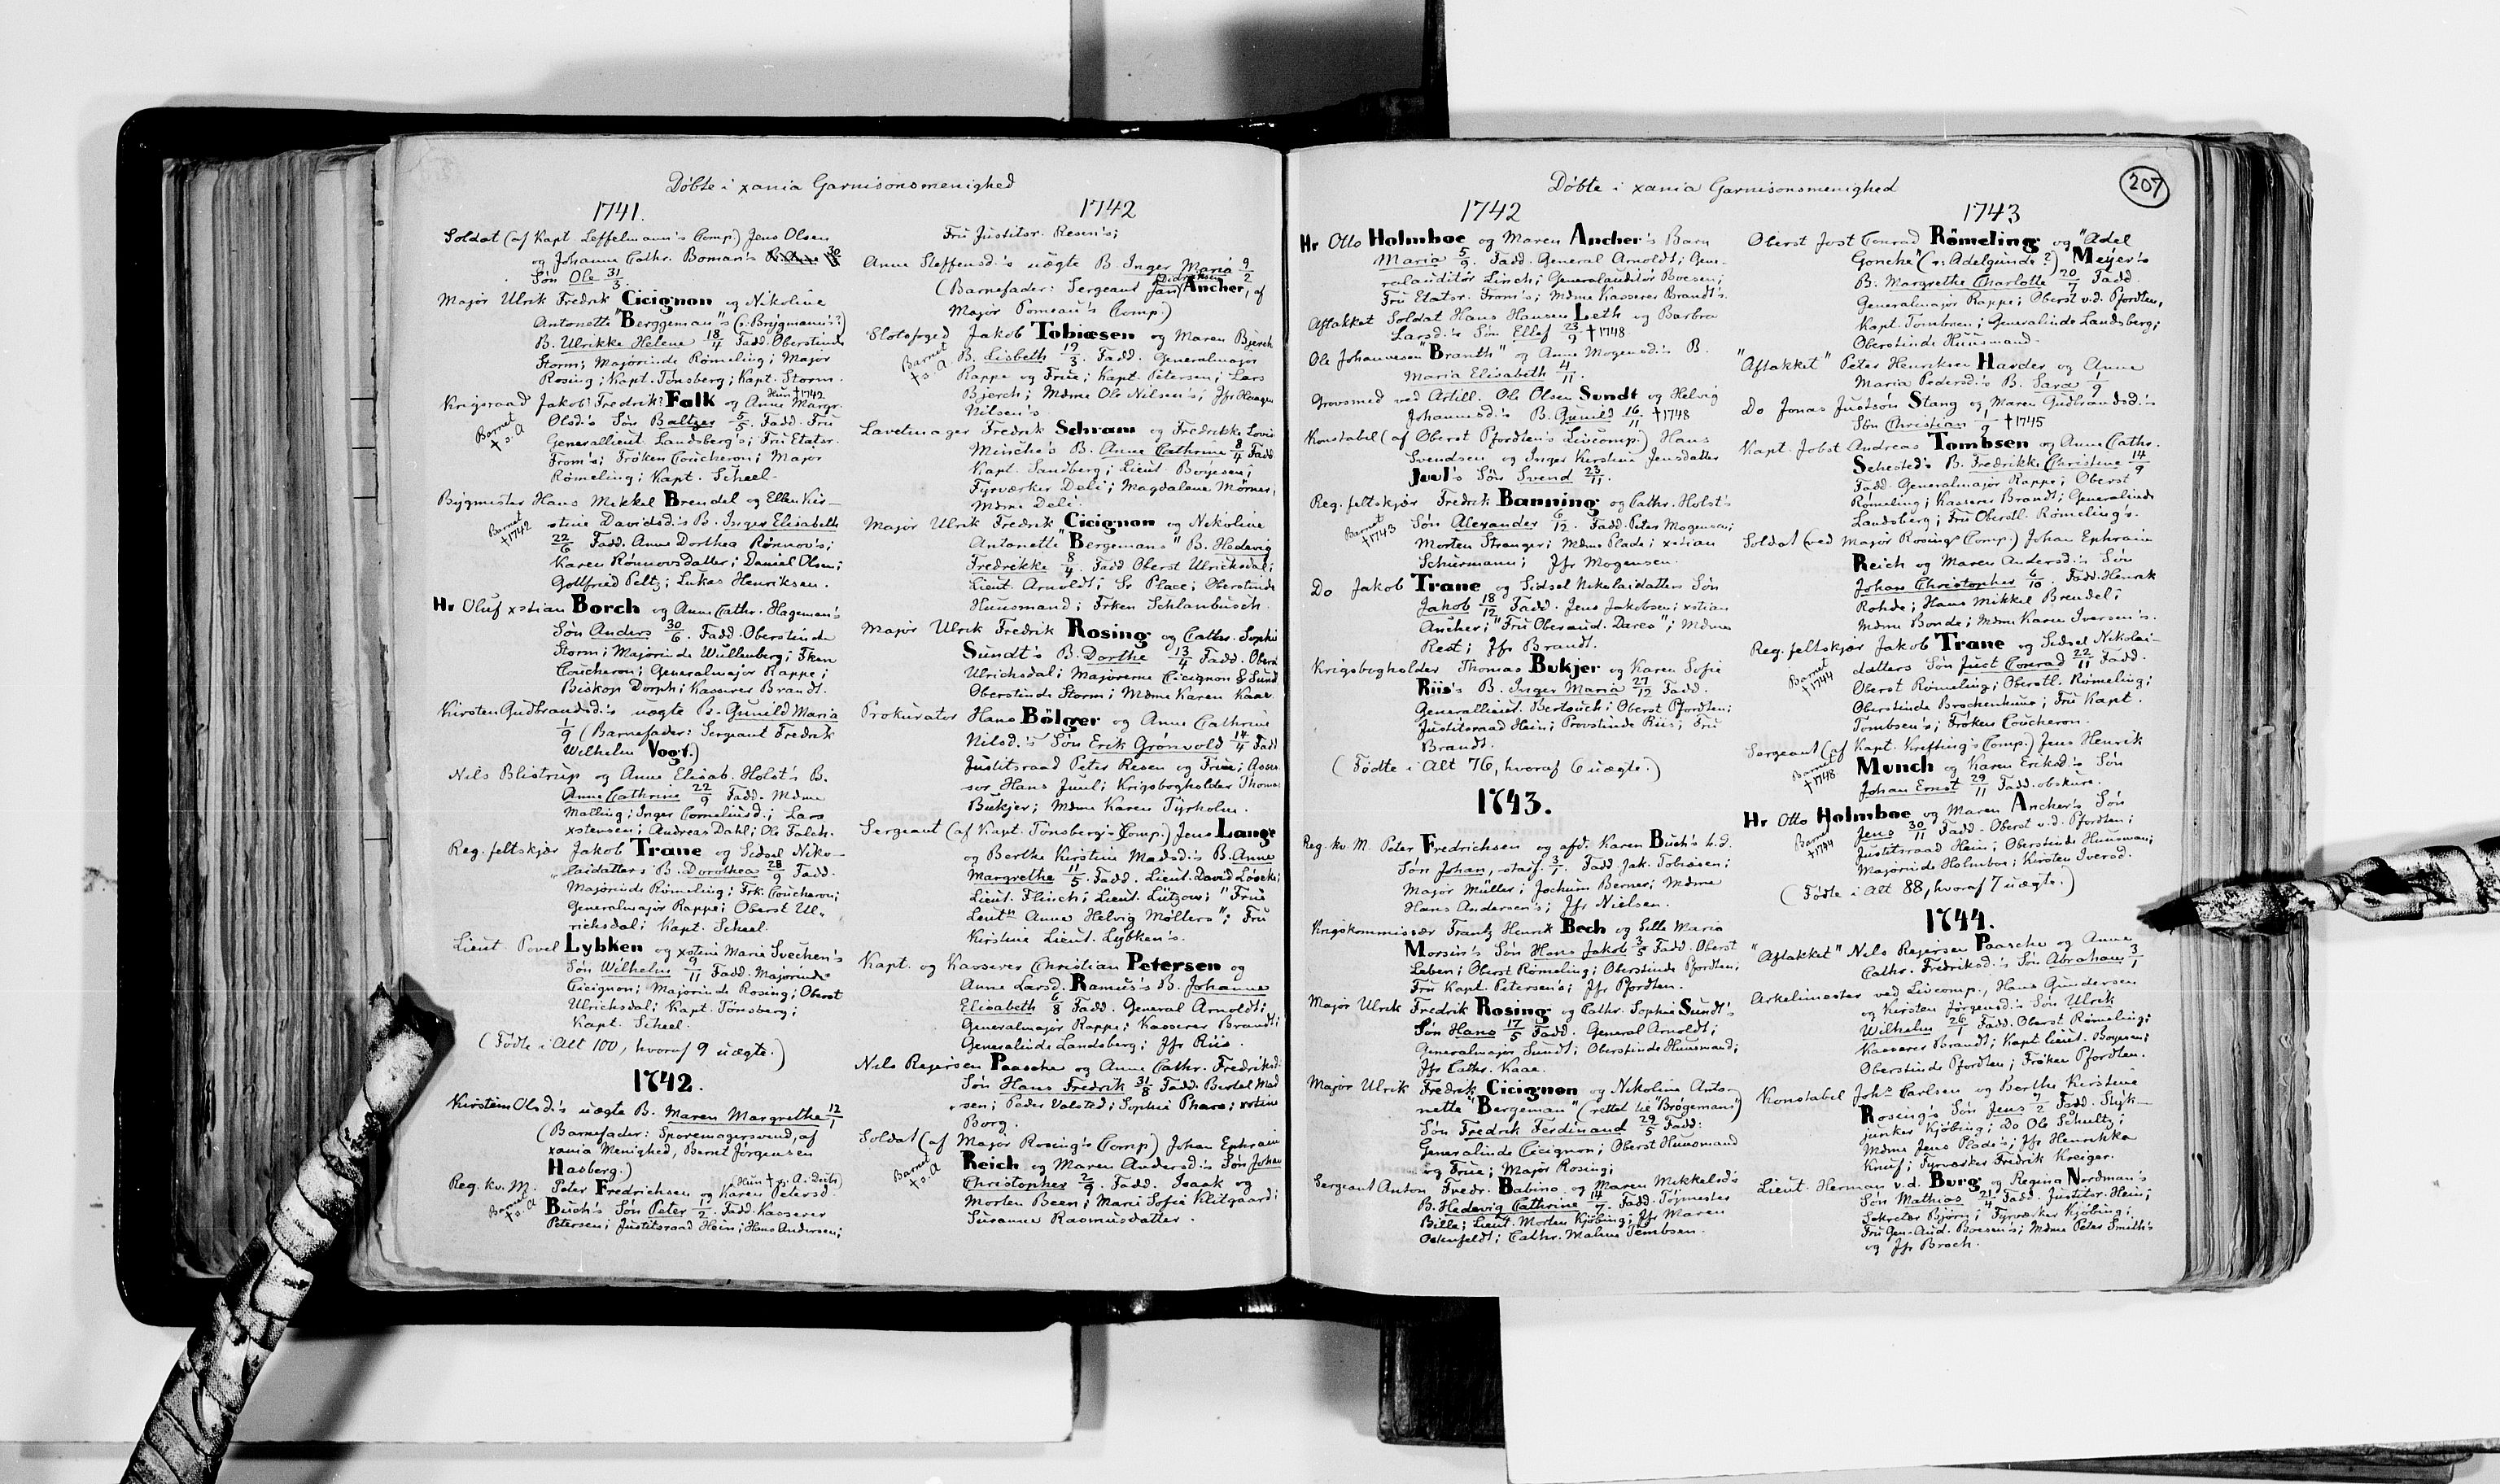 Döbte i xania Garnisonsmenighed
1741.
Soldat (af Kapt Leffelmann's Comp.) Jens Olsen
og Johanne Cathr. Boman's
Søn Ole 31/3.
Major Ulrik Fredrik Cicignon og Nikoline
Antonette "Berggeman"s (ɔ: Brygmann's?)
B. Ulrikke Helene 18/4 Fadd. Oberstinde
Storm; Majorinde Rømeling; Major
Rosing; Kapt. Tønsberg; Kapt. Storm.
Krigsraad Jakob? Fredrik? Falk og Anne Margr. Hun † 1742
Olsd.'s Søn Baltzer 5/5. Fadd. Fru
Barnet † s. A
Generallieut. Landsberg's; Fru Etatsr.
From's; Frøken Coucheron; Major
Rømeling; Kapt. Scheel.
Bygmester Hans Mikkel Brendel og Ellen Kir-
stine Davidsd.'s B. Inger Elisabeth
Barnet † 1742
22/6 Fadd. Anne Dorthea Rønnov's;
Karen Rønnovsdatter; Daniel Olsen;
Gottfried Peltz; Lukas Henriksen.
Hr Oluf xstian Borch og Anne Cathr. Hageman's
Søn Anders 30/6. Fadd. Oberstinde
Storm; Majorinde Wullenberg; Frken
Coucheron; Generalmajor Rappe;
Biskop Dorph; Kasserer Brandt.
Kirsten Gudbrandsd.'s uægte B. Gunild Maria
1/9 (Barnefader: Sergeant Fredrik
Wilhelm Vogt.)
Nils Blistrup og Anne Elisab. Holst's B.
Anne Cathrine 22/9 Fadd. Mdme
Malling; Inger Corneliusd.; Lars
xstensen; Andreas Dahl; Ole Falch.
Reg. feltskjær Jakob Trane og Sidsel Niko-
laidatters B. Dorothea 28/9 Fadd.
Majorinde Rømeling; Frk. Coucheron;
Generalmajor Rappe; Oberst Ul-
richsdal; Kapt. Scheel.
Lieut. Povel Lybken og xstine Marie Svechen's
Søn Wilhelm 9/11 Fadd. Majorinde
Cicignon; Majorinde Rosing; Oberst
Ulrichsdal; Kapt. Tønsberg;
Kapt. Scheel.
(Födte i Alt 100, hvoraf 9 uægte.)
1742.
Kirsten Olsd.'s uægte B. Maren Margrethe 12/1
(Barnefader: Sporemagersvend, af
xania Menighed, Bernt Jørgensen
Hasberg.)
Reg. kv. M. Peter Fredrichsen og Karen Petersd.
Barnet † s. A
Buch's Søn Peter 17/2. Fadd. Kasserer
Petersen; Justitsraad Hein; Hans Andersen;
1742
Fru Justitsr. Resen's;
Anne Steffensd.'s uægte B. Inger Maria 9/2
(Barnefader: Sergeant Ancher, af
Major Pomeau's Comp.)
Slotsfoged Jakob Tobiæsen og Maren Bjerch
Barnet † s. A
B. Lisbeth 19/3. Fadd. Generalmajor
Rappe og Frue; Kapt. Petersen; Lars
Bjerch; Mdme Ole Nilsen's; Jfr Haagen
Nilsen's
Lavetmager Fredrik Schram og Fredrikke Lovis
Minche's B. Anne Cathrine 8/4 Fadd
Kapt. Sandberg; Lieut. Borgesen;
Fyrværker Deli; Magdalene Mørner;
Mdme Deli.
Major Ulrik Fredrik Cicignon og Nikoline
Antonette "Bergemans" B. Hedevig
Fredrikke 8/4. Fadd Oberst Ulrichsdal;
Lieut. Arnoldt; Sr Place; Oberstinde
Huusmand; Frken Schlanbusch.
Major Ulrik Fredrik Rosing og Cathr. Sophie
Sundt's B. Dorthe 13/4 Fadd. Oberst
Ulrichsdal; Majorerne Cicignon & Sund
Oberstinde Storm; Mdme Karen Kaae
Prokurator Hans Bölger og Anne Cathrine
Nilsd.'s Søn Erik Grönvold 14/4 Fadd
Justitsraad Peter Resen og Frue; Asses-
sor Hans Juul; Krigsbogholder Thomas
Bukjer; Mdme Karen Tyrholm.
Sergeant (af Kapt. Tønsberg's Comp.) Jens Lange
og Berthe Kirstine Madsd.'s B. Anne
Margrethe 11/5. Fadd. Lieut. David Löseke;
Lieut. Flinch; Lieut. Lützow; "Frue
Leut" Anne Helvig Møllers"; Fru
Kirstine Lieut. Lybken's.
Kapt. og Kasserer Christian Petersen og
Anne Larsd. Ramus's B. Johanne
Elisabeth 6/8 Fadd. General Arnoldt;
Generalmajor Rappe; Kasserer Brandt;
Generalinde Landsberg; Jfr Riis.
Nils Rejersen Paasche og Anne Cathr. Fredriksd.
Søn Hans Fredrik 31/8 Fadd. Bertel Mad
sen; Peder Valsted; Sophie Phare; xstine
Borg.
Soldat (af Major Rosing's Comp) Johan Ephraim
Barnet † s. A
Reich og Maren Andersd.'s Søn Johan
Christopher 2/9. Fadd. Isaak og
Morten Been; Marie Sofie Klitgaard;
Susanne Rasmusdatter.
207
Döbte i xania Garnisonsmenighed
1742
Hr Otto Holmboe og Maren Ancher's Barn
Maria 5/9. Fadd. General Arnoldt; Gene-
ralauditör Linch; Generalauditör Boesen;
Fru Etatsr. From's; Mdme Kasserer Brandt's.
Aftakket Soldat Hans Hansen Leth og Barbra
Larsd.'s Søn Ellef 23/9 † 1748
Ole Johannesen "Branth" og Anne Mogensd.'s B.
Maria Elisabeth 4/11.
Grovsmed ved Artill. Ole Olsen Sundt og Helvig
Johannsd.'s B. Gunild 16/11 † 1748
Konstabel (af Oberst Pfordten's Livcomp.) Hans
Svendsen og Inger Kirstine Jensdatter
Juel's Søn Svend 23/11.
Reg. feltskjær Fredrik Banning og Cathr. Holst's
Barnet † 1743
Søn Alexander 6/12. Fadd. Peter Mogensen;
Morten Stranger; Mdme Plade; xstian
Schürmann; Jfr Mogensen.
Do Jakob Trane og Sidsel Nikolaidatters Søn
Jakob 18/12 Fadd. Jens Jakobsen; xstian
Ancher; "Fru Oberaud. Dares"; Mdme
Rest; Jfr Brandt.
Krigsbogholder Thomas Bukjer og Karen Sofie
Riis's B. Inger Maria 27/12 Fadd.
Generallieut. Bertouch; Oberst Pfordten;
Justitsraad Hein; Provstinde Riis; Fru
Brandt.
(Födte i Alt 76, hvoraf 6 uægte.)
1743.
Reg. kv. M. Peter Fredrichsen og afd. Karen Buch's t.d.
Søn Johan, 3/1. Fadd. Jak. Tobiæsen;
Major Müller; Jochum Berner; Mdme
Hans Andersen's; Jfr Nielsen.
Krigskommissær Frantz Henrik Bech og Sille Maria
Morsin's Søn Hans Jakob 3/5 Fadd. Oberst
Leben; Oberst Rømeling; Oberstinde Pfordten;
Fru Kapt. Petersen's; Jfr Pfordten.
Major Ulrik Fredrik Rosing og Cathr. Sophie Sundt's
Søn Hans 17/5 Fadd. General Arnoldt;
Generalmajor Sundt; Oberstinde Huusmand;
Jfr Cathr. Kaae.
Major Ulrik Fredrik Cicignon og Nikoline Anto-
nette "Bergeman" (rettet til "Brögemans")
Søn Fredrik Ferdinand 29/5 Fadd:
Generalinde Cicignon; Oberst Huusmand
og Frue; Major Rosing;
Sergeant Anton Fredr. Babino og Maren Mikkelsd's
B. Hedevig Cathrine 14/7. Fadd. Töjmester
Bille; Lieut. Morten Kjöbing; Jfr Maren
Ostenfeldt; Cathr. Maline Tembsen.
1743
Oberst Jost Conrad Rømeling og "Adel
Gonche" (ɔ: Adelgunde?) Meyer's
B. Margrethe Charlotte 20/7 Fadd.
Generalmajor Rappe; Oberst v.d. Pfordten;
Kapt. Tombsen; Generalinde Landsberg;
Oberstinde Huusmand.
"Aftakket" Peter Henriksen Harder og Anne
Maria Pedersd.'s B. Sara 1/9
Do Jonas Justsøn Stang og Maren Gudbrandsd.'s
Søn Christian 1/9 † 1745
Kapt. Jobst Andreas Tombsen og Anne Cathr.
Sehested's B. Fredrikke Christine 14/9
Fadd. Generalmajor Rappe; Oberst
Rømeling; Kasserer Brandt; Generalinde
Landsberg; Fru Oberstl. Rømeling's.
Soldat (ved Major Rosings Comp.) Johan Ephraim
Reich og Maren Andersd.'s Søn
Johan Christopher 6/10. Fadd. Henrik
Rohde; Hans Mikkel Brendel;
Mdme Bonde; Mdme Karen Iversen's.
Reg. feltskjær Jakob Trane og Sidsel Nikolai-
Barnet † 1744
datters Søn Just Conrad 22/11 Fadd.
Oberst Rømeling; Oberstl. Rømeling;
Oberstinde Brochenhuus; Fru Kapt.
Tombsen's; Frøken Coucheron.
Sergeant (af Kapt. Krefting's Comp.) Jens Henrik
Barnet † 1748
Munch og Karen Eriksd.'s Søn
Johan Ernst 29/11 Fadd. obskure.
Hr Otto Holmboe og Maren Ancher's Søn
Barnet † 1744
Jens 30/11 Fadd. Oberst v.d. Pfordten;
Justitsraad Hein; Oberstinde Huusman;
Majorinde Holmboe; Kirsten Iversd.
(Födte i Alt 88, hvoraf 7 uægte.)
1744.
"Aftakket" Nils Rejersen Paasche og Anne
Cathr. Fredriksd.'s Søn Abraham 3/1
Arkelimester ved Livcomp., Hans Gundersen
og Kirsten Jørgensd.'s Søn Ulrik
Wilhelm 26/1 Fadd. Oberst Rømeling;
Kasserer Brandt; Kapt lieut. Borgesen;
Oberstinde Pfordten; Frøken Pfordten.
Konstabel Johs Carlsen og Berthe Kirstine
Rosing's Søn Jens 7/2 Fadd. Styk-
junker Kjöbing; Do Ole Schultz;
Mdme Jens Plade's; Jfr Henrikka
Knuf; Fyrværker Fredrik Kreiger.
Lieut. Herman v.d. Burg og Regina Nordman's
Søn Mathias 21/4 Fadd. Justitsr. Hein;
Sekretær Bjørn; Fyrværker Kjöbing;
Fru Gen-Aud. Boesen's; Mdme Peter Smith's
og Jfr Broch.